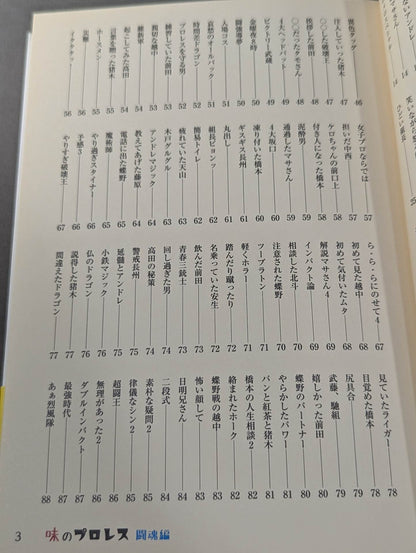 異色タッグ 46
注入していった猪木 47
〇〇した破壊王 47
挨拶した前田 48
〇〇だったタモさん 48
4大ヘッドバット 49
ビクトリー武蔵 49
金曜夜8時 50
闘強導夢 50
入場コス 51
哀愁のオールバック 51
時間差ドラゴン 52
プロレスを守る男 52
練習していた前田 53
親切な越中 53
維新軍 54
起こしてみた高田 54
言葉を贈った猪木 55
ホースメン 55
災難 56
イタタタッ 56
女子プロならでは 57
担いだ中西 57
ケロちゃんの前口上 58
付き人になった橋本 58
泥酔男 59
通過したマサさん 59
4大坂口 60
凍り付いた橋本 60
ギスギス長州 61
丸出し 61
組長ピョンッ 62
簡易トイレ 62
疲れていた天山 63
木戸グルグル 63
アンドレマジック 64
教えてあげた藤原 64
電話に出た蝶野 65
魔術師 65
やり過ぎスタイナー 66
予感3 66
やりすぎ破壊王 67
ら・ら・らにのせて4 67
初めて見た越中 68
初めて気付いたムタ 68
解説マサさん4 69
インパクト論 69
相談した北斗 70
注意された蝶野 70
ツープラトン 71
軽くホラー 71
踏んだり蹴ったり 72
名乗っていた安生 72
飲んだ前田 73
青春三銃士 73
回し過ぎた男 74
高田の秘策 74
警戒長州 75
延髄とアンドレ 75
小鉄マジック 76
仏のドラゴン 76
説得した猪木 77
間違えたドラゴン 77
見ていたライガー 78
目覚めた橋本 78
尻具合 79
武藤、馳組 79
嬉しかった前田 80
蝶野のパートナー 80
やらかしたパワー 81
パンと紅茶と猪木 81
橋本の人生相談2 82
絡まれたホーク 82
蝶野戦の越中 83
怖い顔して 83
日明兄さん 84
二段式 84
素朴な疑問2 85
律儀なシン2 85
超闘王 86
無理があった2 86
ダブルインパクト 87
最強時代 87
あぁ烈風隊 88
3 味のプロレス 闘魂編